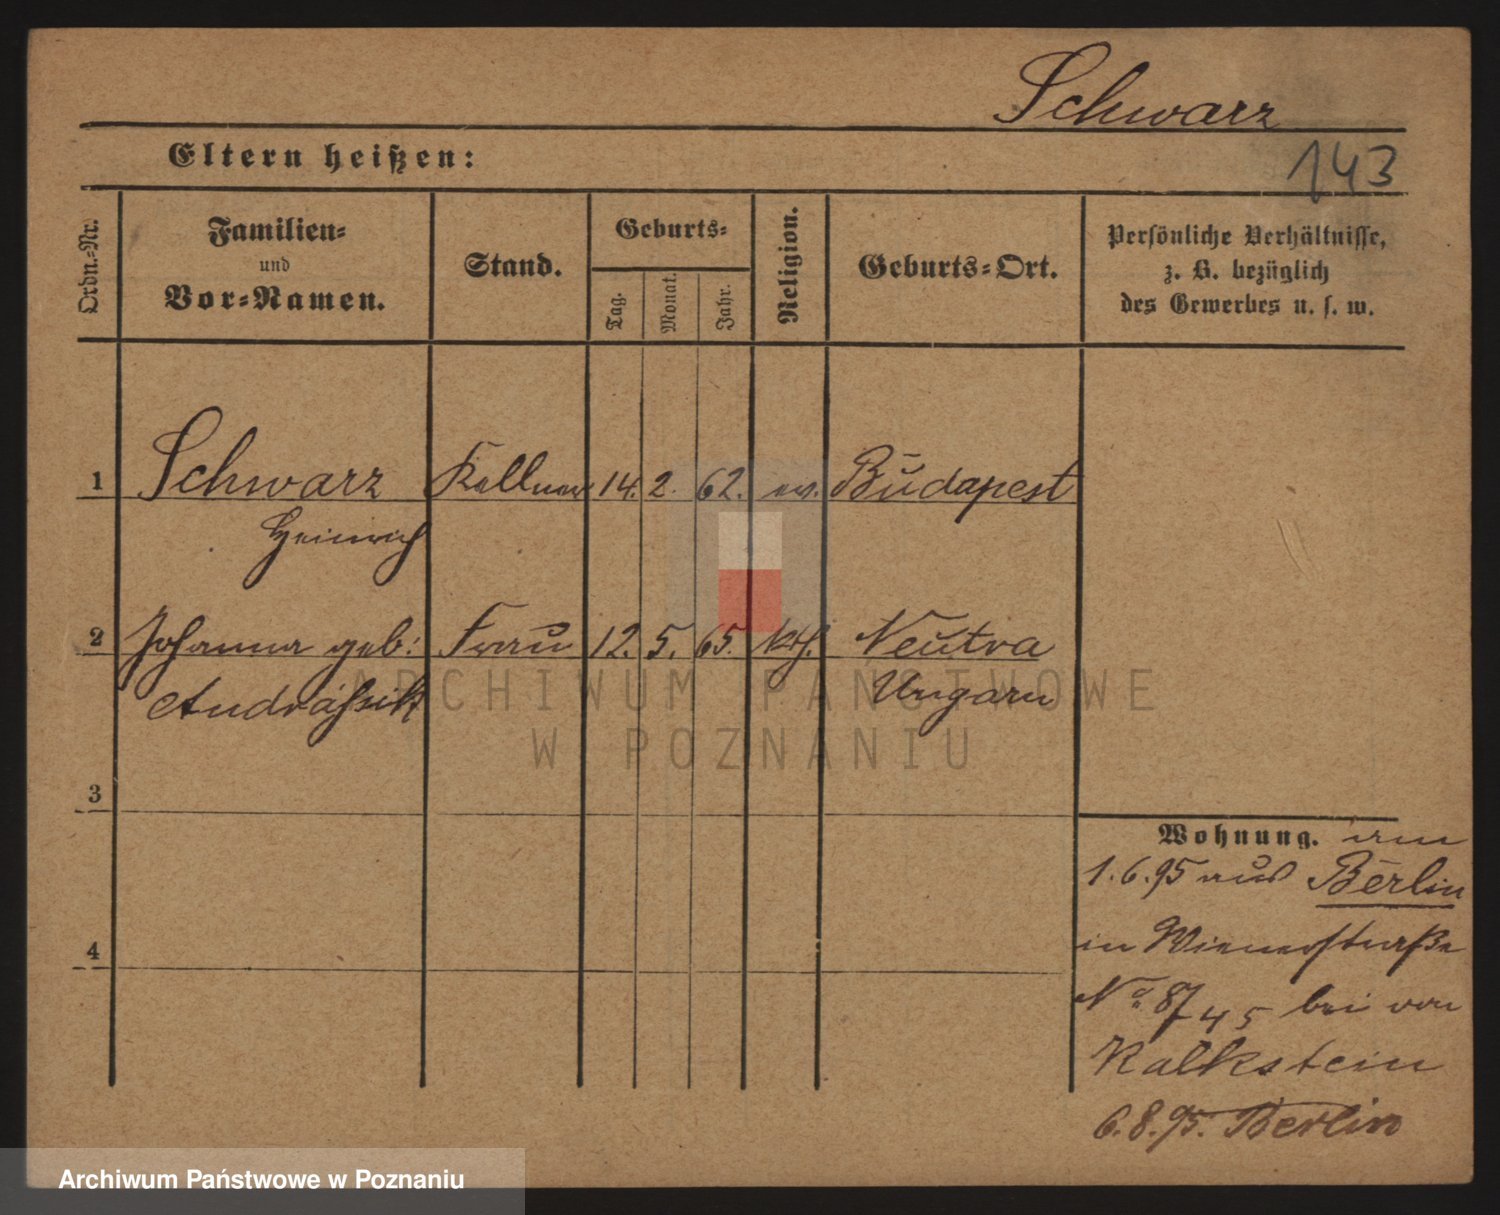 Schwarz
Eltern heißen:
143
Ordn.-Nr.
Familien-
und
Vor-Namen.
Stand.
Geburts-
Tag.
Monat.
Jahr.
Religion.
Geburts-Ort.
Persönliche Verhältnisse,
z. B. bezüglich
des Gewerbes u. s. w.
1 Schwarz Kellner 14. 2. 62. ev. Budapest
Heinrich
2 Johanna geb: Frau 12. 5. 65. kth. Neutra
Andräßik Ungarn
3
4
Wohnung. am
1.6.95 aus Berlin
in Wienerstraße
No 8/ bei von
Kalkstein
6.8.95. Berlin
ARCHIWUM PAŃSTWOWE
W POZNANIU
Archiwum Państwowe w Poznaniu